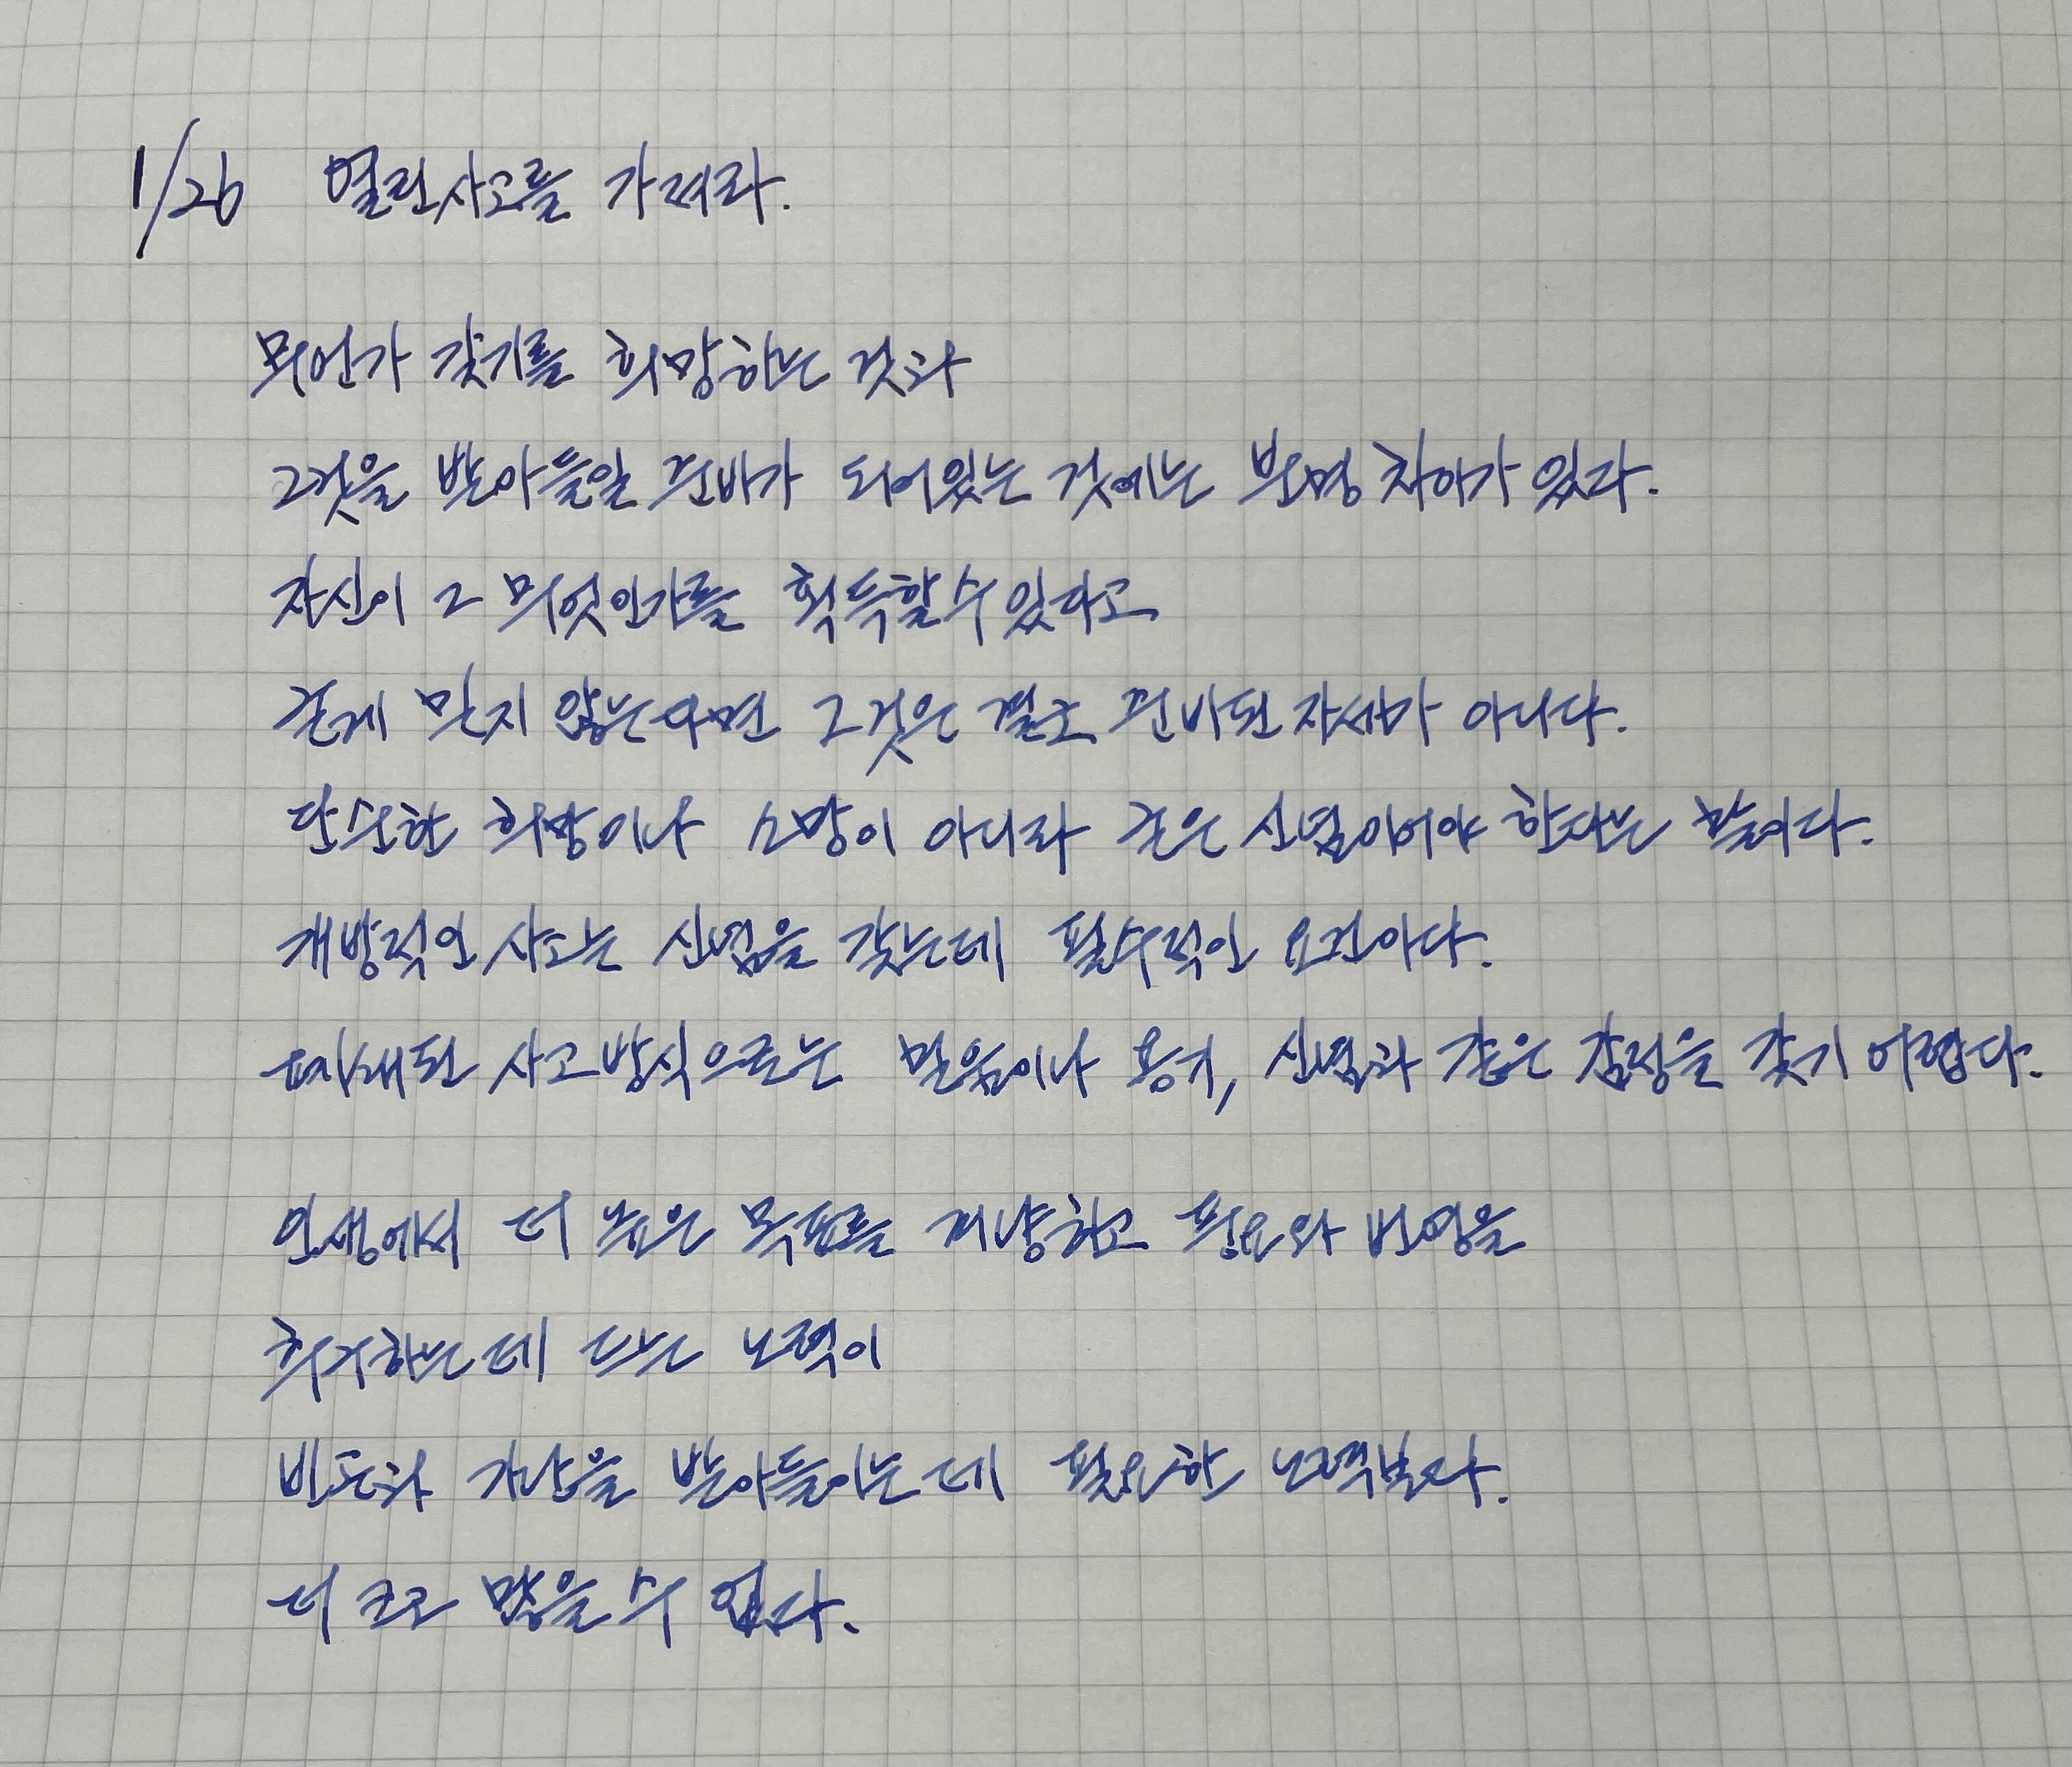 1/26 열린사고를 가져라.
무언가 갖기를 희망하는 것과
그것을 받아들일 준비가 되어있는 것에는 분명 차이가 있다.
자신이 그 무엇인가를 획득할 수 있다고
굳게 믿지 않는다면 그것은 결코 준비된 자세가 아니다.
단순한 희망이나 소망이 아니라 굳은 신념이어야 한다는 말이다.
개방적인 사고는 신념을 갖는데 필수적인 요건이다.
폐쇄된 사고방식으로는 믿음이나 용기, 신념과 같은 감정을 갖기 어렵다.
인생에서 더 높은 목표를 지향하고 풍요와 번영을
희구하는데 드는 노력이
빈곤과 가난을 받아들이는데 필요한 노력보다.
더 크고 많을 수 없다.